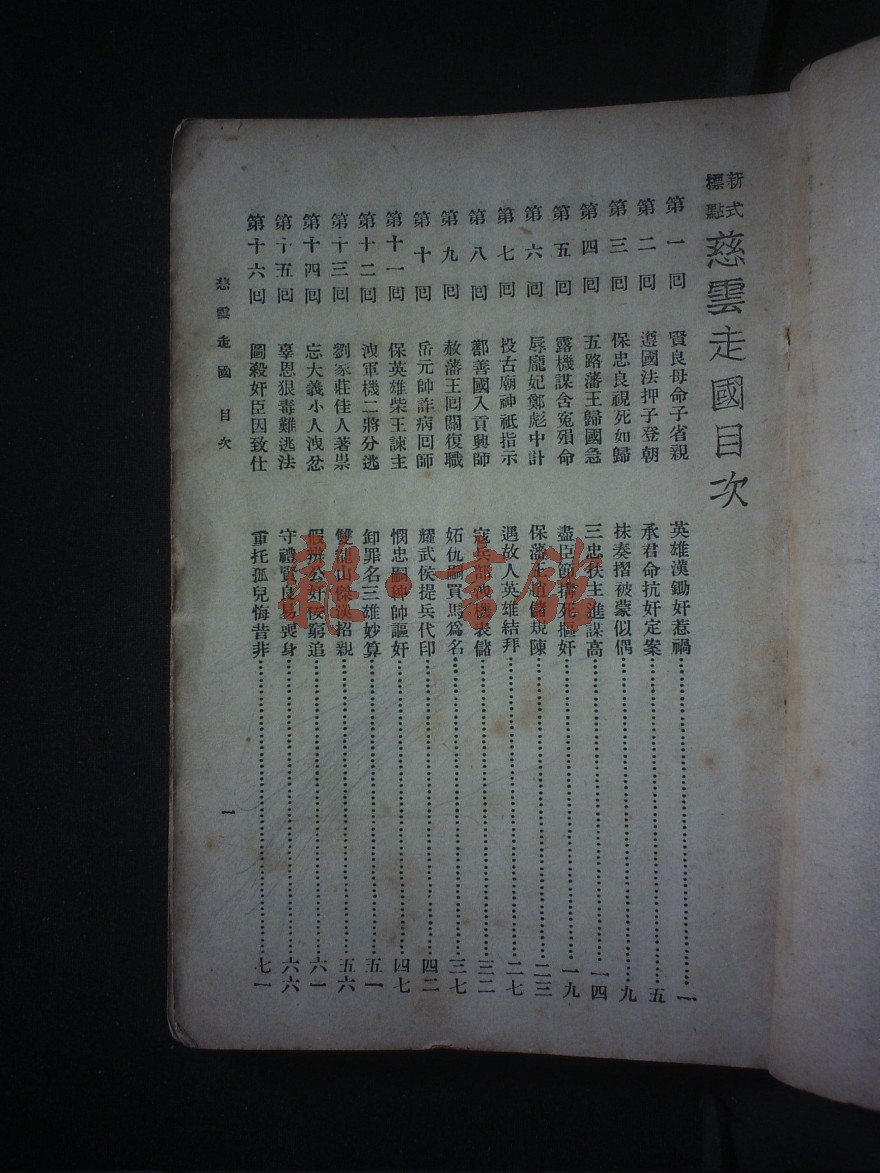 新式標點 慈雲走國目次
第一回 賢良母命子省親 英雄漢鋤奸惹禍 一
第二回 遵國法押子登朝 承君命抗奸定案 五
第三回 保忠良視死如歸 抹奏摺被蒙似偶 九
第四回 五路藩王歸國急 三忠扶主進謀高 一四
第五回 露機謀含冤殞命 盡臣節擕死摳奸 一九
第六回 辱龐妃鄭彪中計 保藩王 儲規陳 二三
第七回 投古廟神祇指示 遇故人英雄結拜 二七
第八回 鄯善國入貢興師 寇兵部 機表儲 三二
第九回 赦藩王回關復職 妬仇嗣買馬爲名 三七
第十回 岳元帥詐病回師 耀武侯提兵代印 四二
第十一回 保英雄柴王諫主 憫忠嗣 帥謳奸 四七
第十二回 洩軍機二將分逃 卸罪名三雄妙算 五一
第十三回 劉家莊佳人著祟 雙龍山傑漢招親 五六
第十四回 忘大義小人洩忿 假辨公奸佞窮追 六一
第十五回 辜恩狠毒難逃法 守禮賢良易喪身 六六
第十六回 圖殺奸臣因致仕 重托孤兒悔昔非 七一
慈雲走國 目次
一
雜·書館